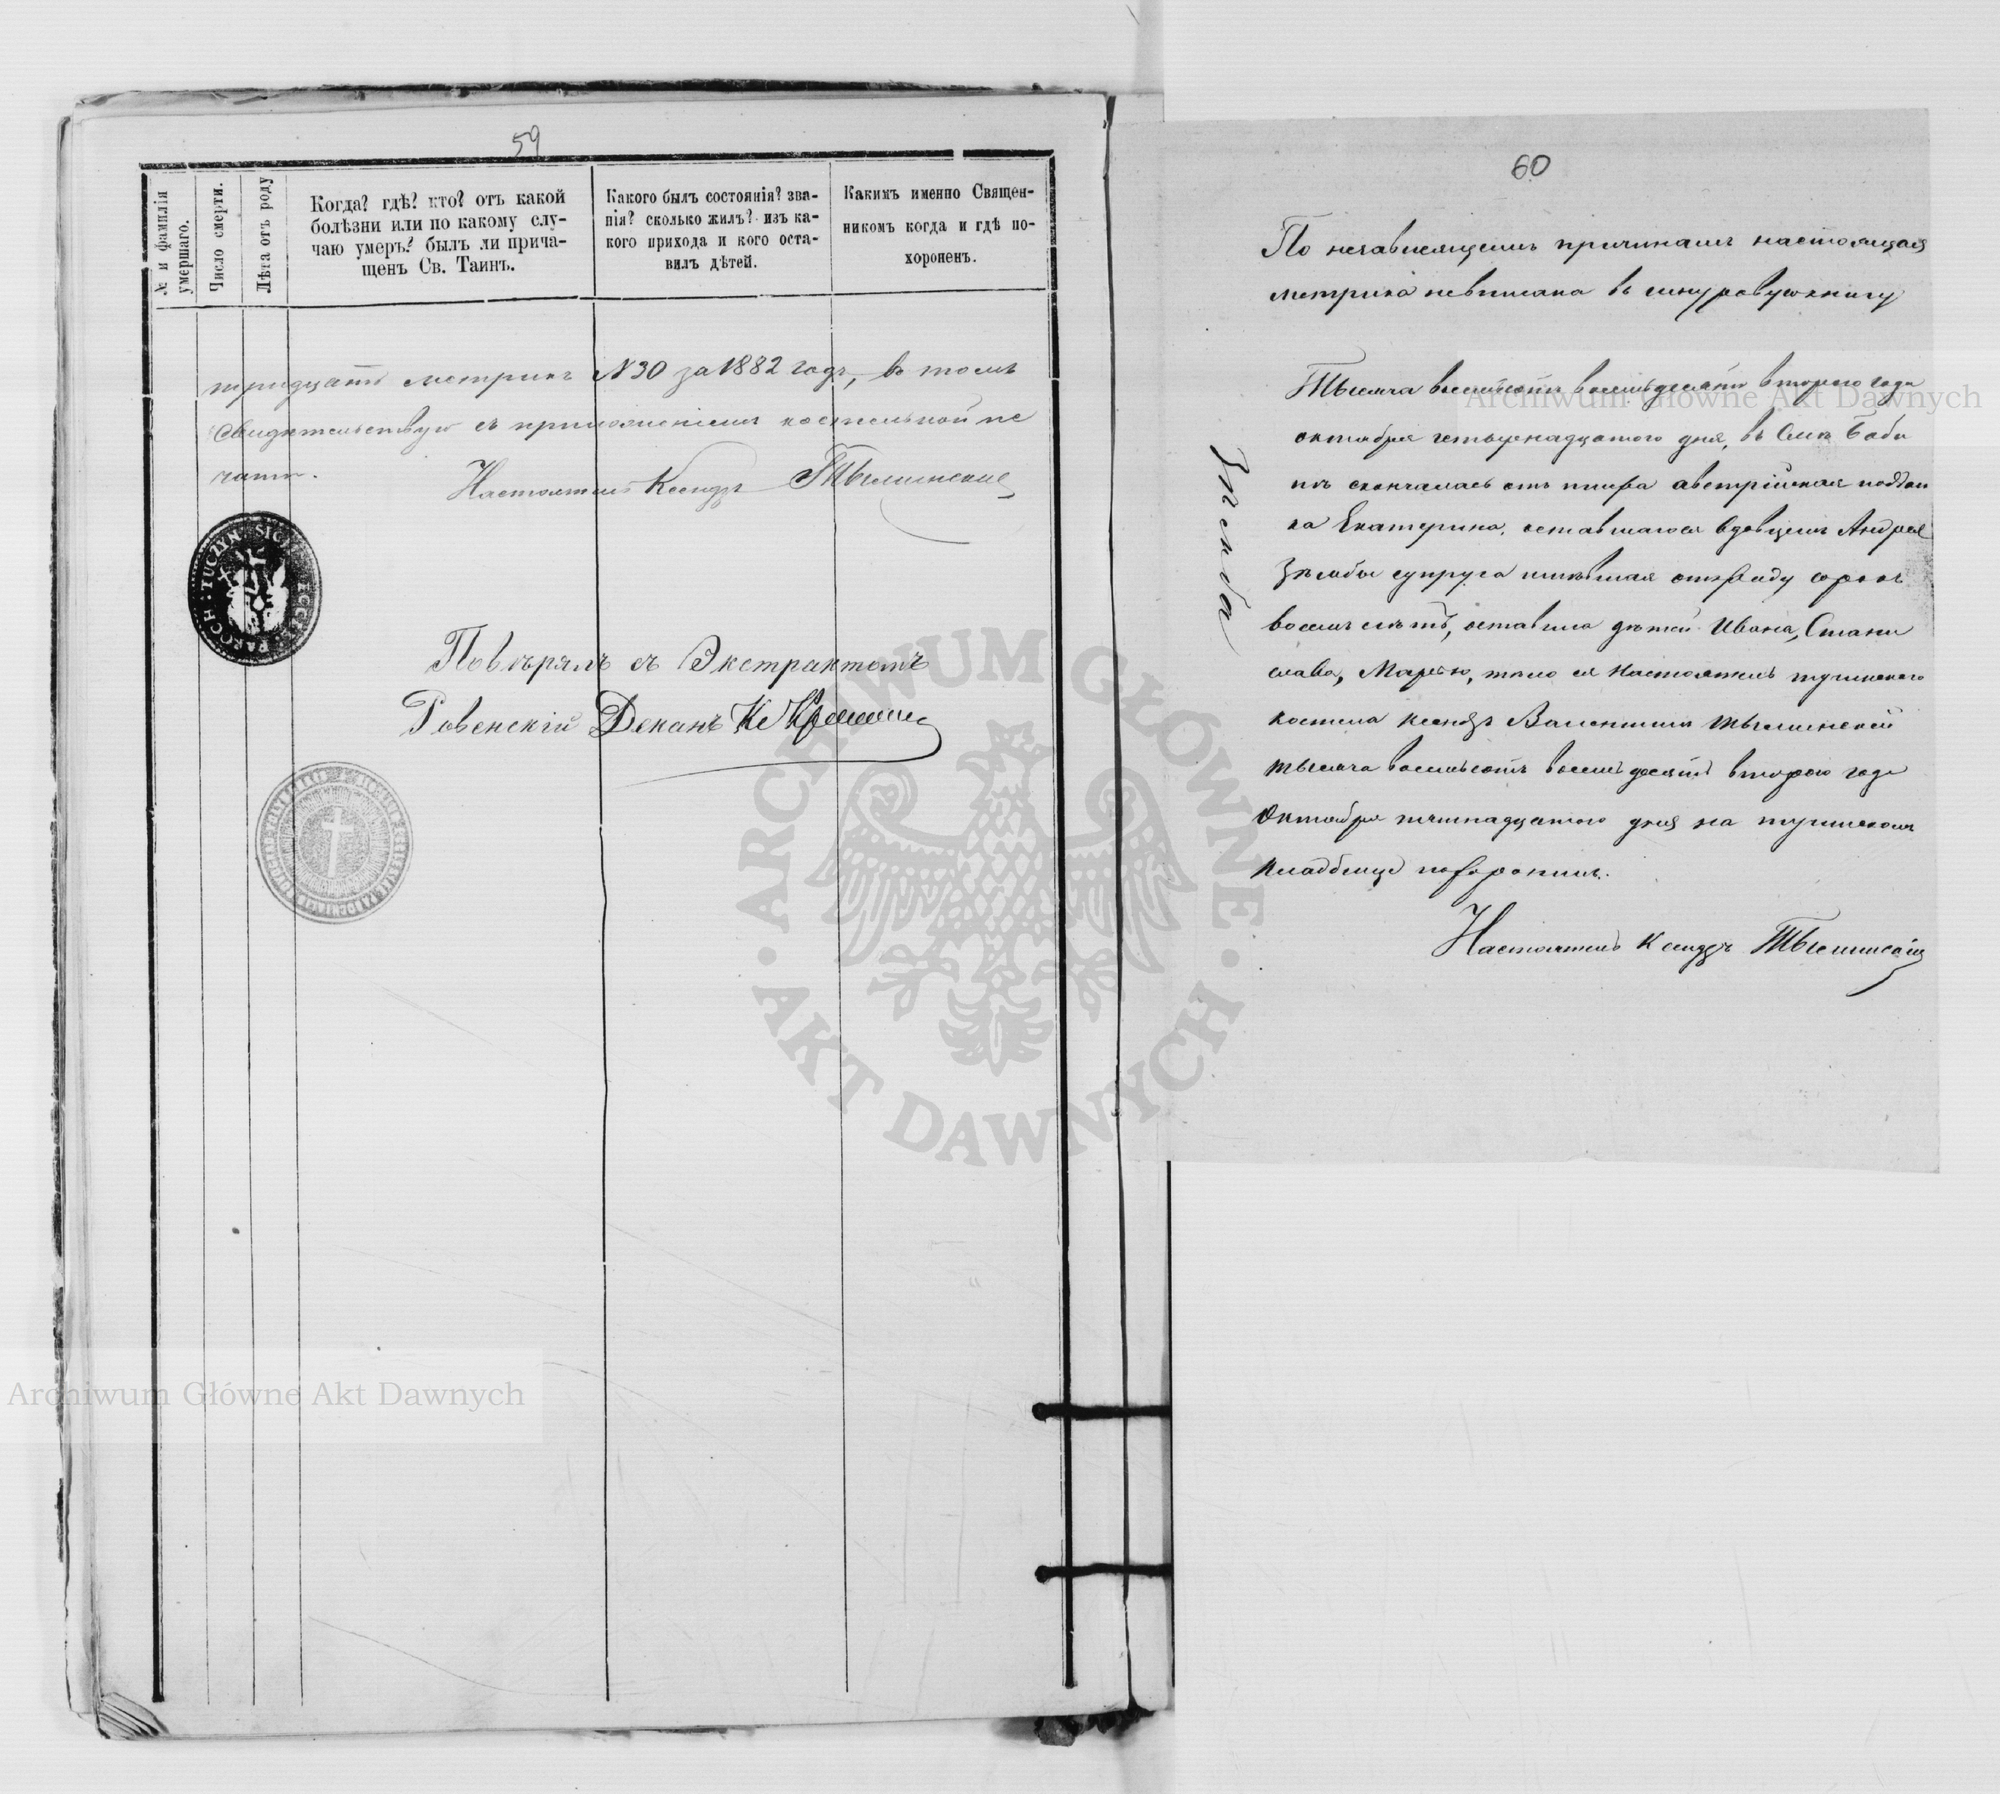 59
№ и фамилія умершаго.
Число смерти.
Лѣта отъ роду
Когда? гдѣ? кто? отъ какой
болѣзни или по какому слу-
чаю умеръ? былъ ли прича-
щенъ Св. Таинъ.
Какого былъ состоянія? зва-
нія? сколько жилъ? изъ ка-
кого прихода и кого оста-
вилъ дѣтей.
Какимъ именно Священ-
никомъ когда и гдѣ по-
хороненъ.
тридцать метрикъ №30 за 1882 годъ, въ томъ
свидѣтельствую съ приложеніемъ костельной пе
чати.
Настоятель Ксендзъ Тысминскій
PAROCH: TUCZYN SIG ECCL
Повѣрялъ съ Экстрактомъ
Ровенскій Деканъ Кс
60
По независящимъ причинамъ настоящая
метрика невписана въ шнуровую книгу
Зѣмба
Тысяча восемьсотъ восемьдесятъ второго года
октября четырнадцатого дня, въ Селѣ Баби
нѣ скончалась отъ тифа австрійская поддан
ка Екатерина, оставшагося вдовцемъ Андрея
Зѣмбы супруга имѣвшая отъ роду сорокъ
восемь лѣтъ, оставила дѣтей Ивана, Стани
слава, Марью, тѣло ея Настоятель тучинского
костела ксендзъ Валентинъ Тысминскій
тысяча восемьсотъ восемьдесятъ второго года
Октября дня на тучинскомъ
кладбище похоронилъ.
Настоятель Ксендзъ Тысминскій
Archiwum Główne Akt Dawnych
ARCHIWUM GŁÓWNE · AKT DAWNYCH ·
Archiwum Główne Akt Dawnych